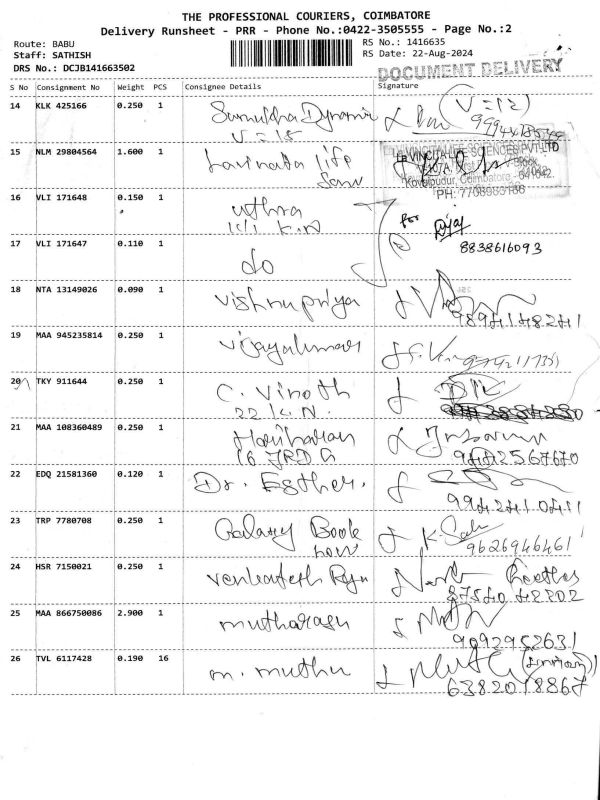 THE PROFESSIONAL COURIERS, COIMBATORE
Delivery Runsheet - PRR - Phone No.:0422-3505555 - Page No.:2
Route: BABU
Staff: SATHISH
DRS No.: DCJB141663502
RS No.: 1416635
RS Date: 22-Aug-2024
DOCUMENT DELIVERY
S No Consignment No Weight PCS Consignee Details Signature
14 KLK 425166 0.250 1
15 NLM 29804564 1.600 1 life
LaVINCITA LIFE SCIENCES PVT LTD
Kovaipudur, Coimbatore - 641042.
PH: 7708983188
16 VLI 171648 0.150 1 uthra
for
17 VLI 171647 0.110 1 do
8838616093
18 NTA 13149026 0.090 1 vishnupriya
9894148241
19 MAA 945235814 0.250 1 vijayakumar
20 TKY 911644 0.250 1 C. Vinoth
22 K.N.
21 MAA 108360489 0.250 1 Hariharan
16 JRD
9442567670
22 EDQ 21581360 0.120 1 Dr. Esther.
9942410411
23 TRP 7780708 0.250 1 Galaxy Book
9626946461
24 HSR 7150021 0.250 1 venkatesh
8754048202
25 MAA 866750086 2.900 1 mutharasu
9092952631
26 TVL 6117428 0.190 16 m. muthu
6382018867